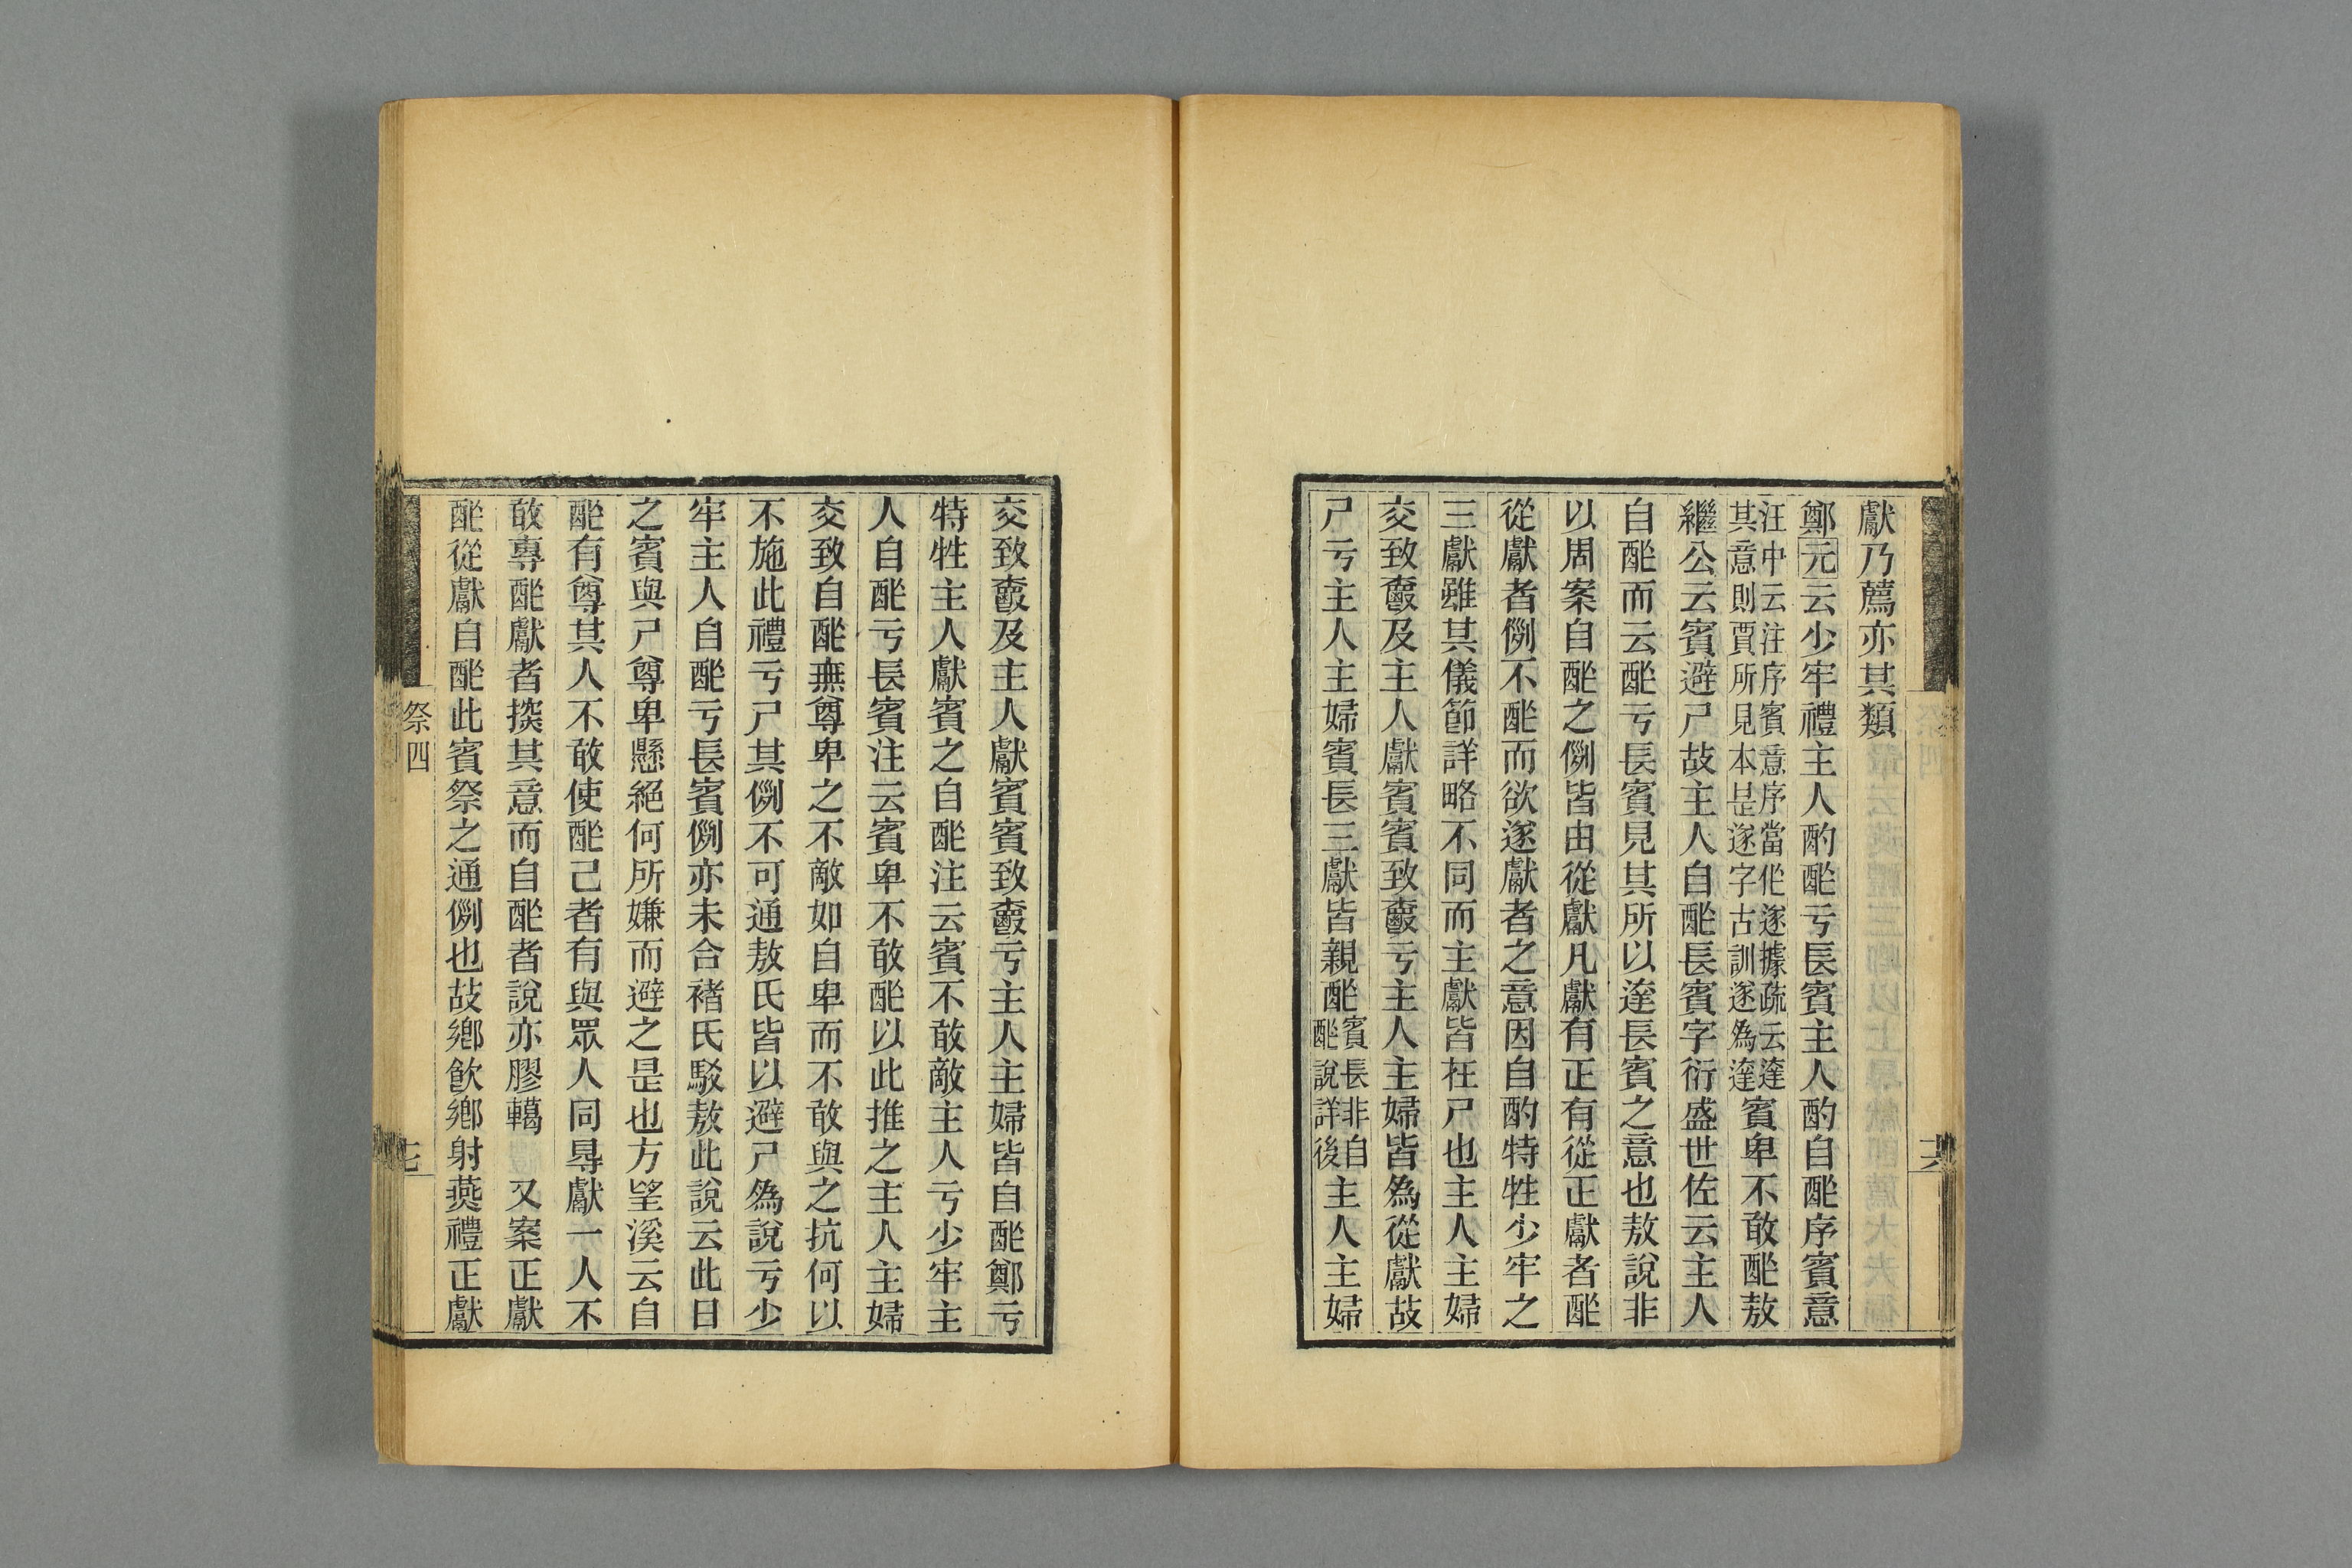 獻乃薦亦其類
鄭元云少牢禮主人酌酢亏長賓主人酌自酢序賓意
汪中云注序賓意序當作遂據疏云達
其意則賈所見本是遂字古訓遂爲達
賓卑不敢酢敖
繼公云賓避尸故主人自酢長賓字衍盛世佐云主人
自酢而云酢亏長賓見其所以達長賓之意也敖說非
以周案自酢之例皆由從獻凡獻有正有從正獻者酢
從獻者例不酢而欲遂獻者之意因自酌特牲少牢之
三獻雖其儀節詳略不同而主獻皆在尸也主人主婦
交致爵及主人獻賓賓致爵亏主人主婦皆爲從獻故
尸亏主人主婦賓長三獻皆親酢
賓長非自
酢說詳後
主人主婦
六
交致爵及主人獻賓賓致爵亏主人主婦皆自酢鄭亏
特牲主人獻賓之自酢注云賓不敢敵主人亏少牢主
人自酢亏長賓注云賓卑不敢酢以此推之主人主婦
交致自酢無尊卑之不敵如自卑而不敢與之抗何以
不施此禮亏尸其例不可通敖氏皆以避尸爲說亏少
牢主人自酢亏長賓例亦未合褚氏駁敖此說云此日
之賓與尸尊卑懸絕何所嫌而避之是也方望溪云自
酢有尊其人不敢使酢己者有與眾人同㝵獻一人不
敢專酢獻者揬其意而自酢者說亦膠轕 又案正獻
酢從獻自酢此賓祭之通例也故鄉飲鄉射燕禮正獻
祭四
七